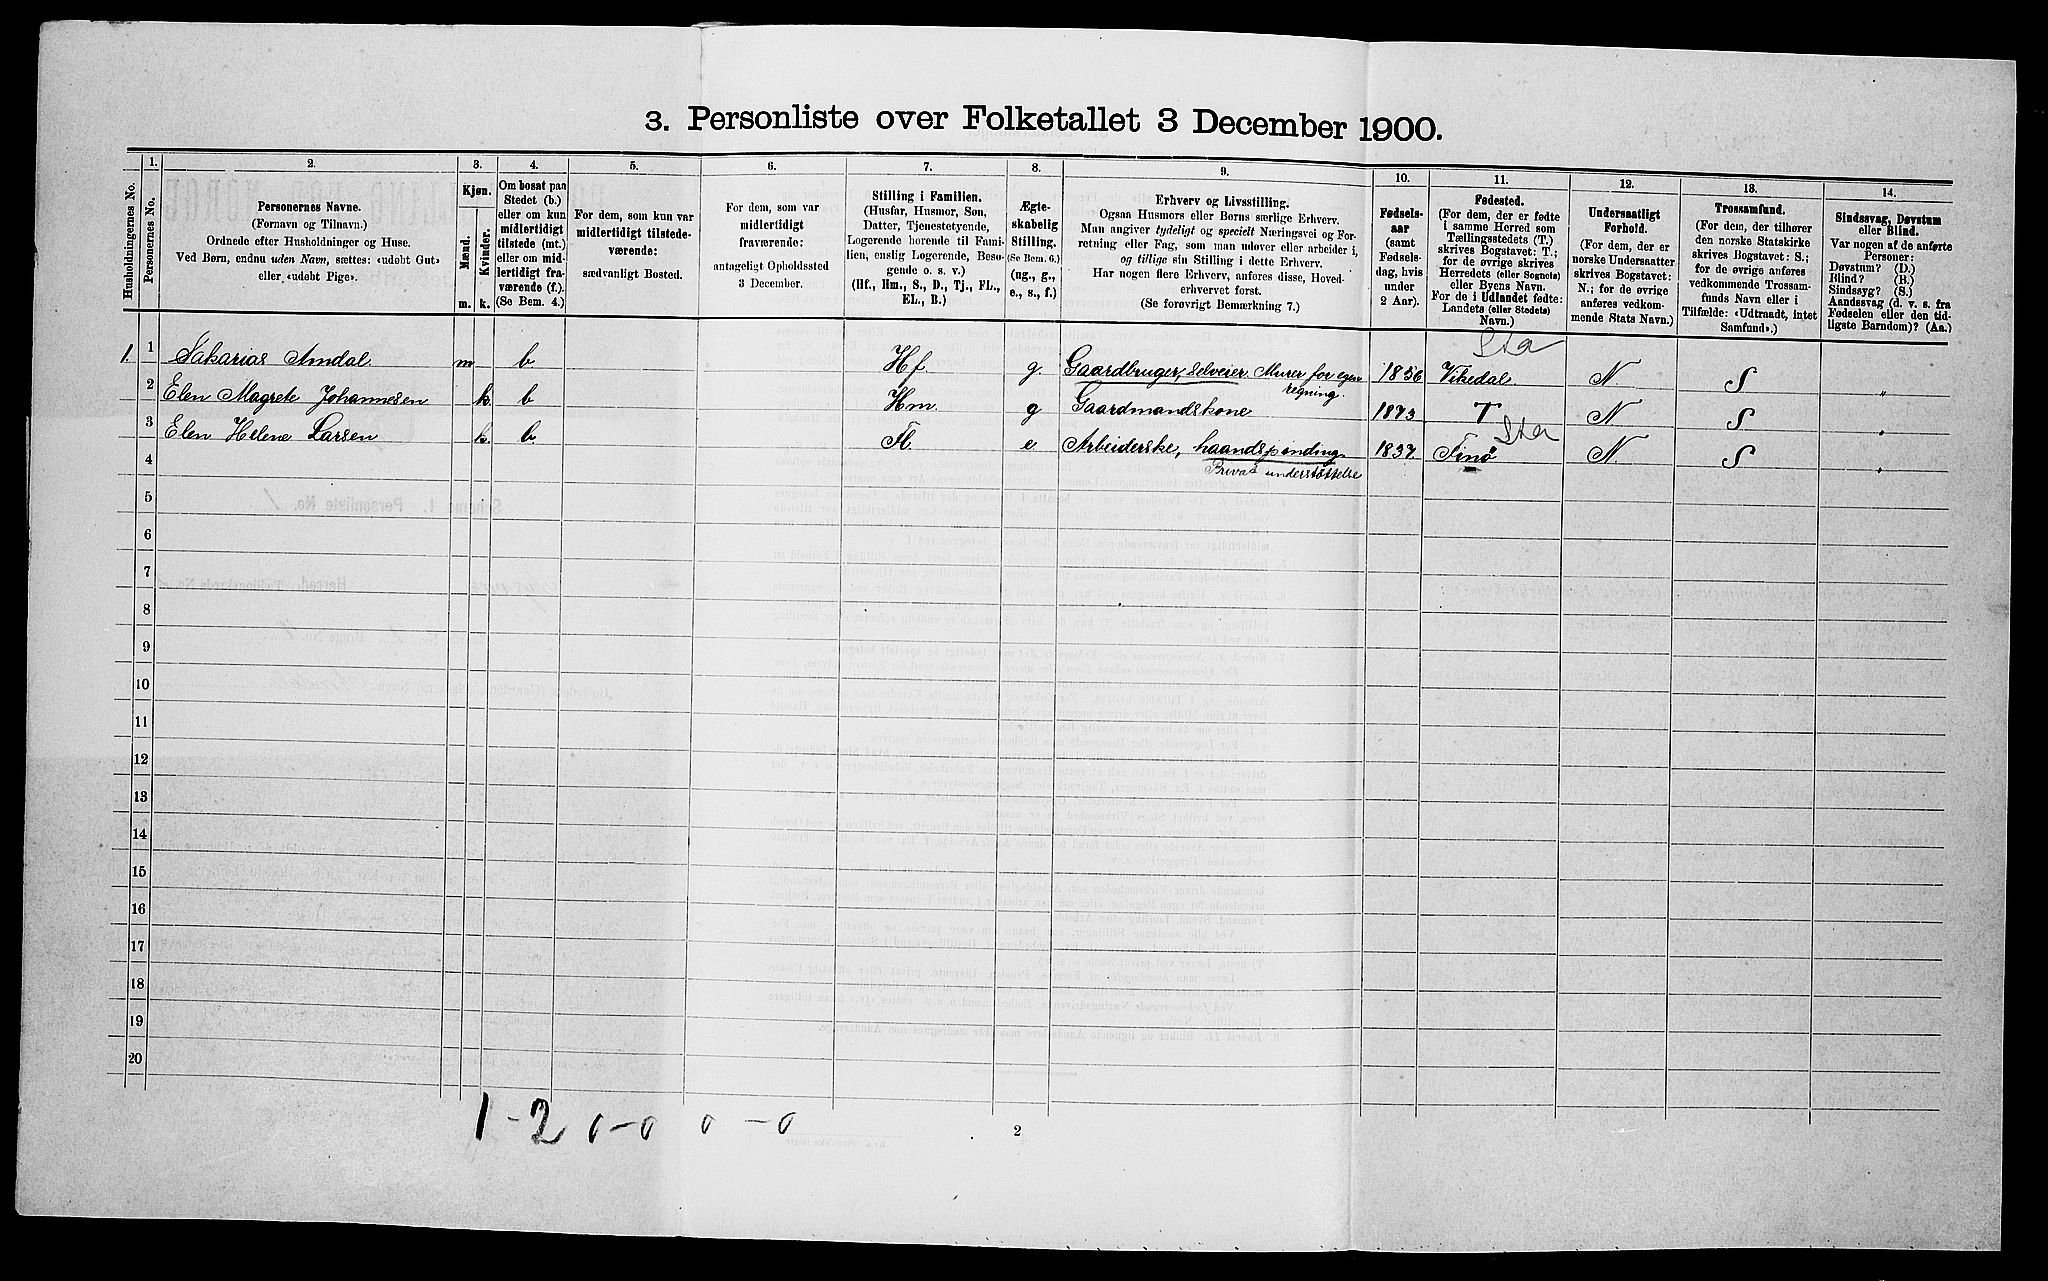 3. Personliste over Folketallet 3 December 1900.
Husholdningernes No.
1.
Personernes No.
2.
Personernes Navne.
(Fornavn og Tilnavn.)
Ordnede efter Husholdninger og Huse.
Ved Børn, endnu uden Navn, sættes: «udøbt Gut»
eller «udøbt Pige».
3.
Kjøn.
Mænd.
Kvinder.
m.
k.
4.
Om bosat paa
Stedet (b.)
eller om kun
midlertidigt
tilstede (mt.)
eller om mid-
lertidigt fra-
værende (f.).
(Se Bem. 4.)
5.
For dem, som kun var
midlertidigt tilstede-
værende:
sædvanligt Bosted.
6.
For dem, som var
midlertidigt
fraværende:
antageligt Opholdssted
3 December.
7.
Stilling i Familien.
(Husfar, Husmor, Søn,
Datter, Tjenestetyende,
Logerende hørende til Fami-
lien, enslig Logerende, Besø-
gende o. s. v.)
(Hf., Hm., S., D., Tj., FL.,
EL., B.)
8.
Ægte-
skabelig
Stilling.
(Se Bem. 6.)
(ug., g.,
e., s., f.)
9.
Erhverv og Livsstilling.
Ogsaa Husmors eller Børns særlige Erhverv.
Man angiver tydeligt og specielt Næringsvei og For-
retning eller Fag, som man udover eller arbeider i,
og tillige sin Stilling i dette Erhverv.
Har nogen flere Erhverv, anføres disse, Hoved-
erhvervet først.
(Se forøvrigt Bemærkning 7.)
10.
Fødsels-
aar
(samt
Fødsels-
dag, hvis
under
2 Aar).
11.
Fødested.
(For dem, der er fødte
i samme Herred som
Tællingsstedets (T.)
skrives Bogstavet: T.;
for de øvrige skrives
Herredets (eller Sognets)
eller Byens Navn.
For de i Udlandet fødte:
Landets (eller Stedets)
Navn.)
12.
Undersaatligt
Forhold.
(For dem, der er
norske Undersaatter
skrives Bogstavet:
N.; for de øvrige
anføres vedkom-
mende Stats Navn.)
13.
Trossamfund.
(For dem, der tilhører
den norske Statskirke
skrives Bogstavet: S.;
for de øvrige anføres
vedkommende Trossam-
funds Navn eller i
Tilfælde: «Udtraadt, intet
Samfund».)
14.
Sindssvag, Døvstum
eller Blind.
Var nogen af de anførte
Personer:
Døvstum? (D.)
Blind? (B.)
Sindssyg? (S.)
Aandssvag (d. v. s. fra
Fødselen eller den tid-
ligste Barndom)? (Aa.)
Sta
1. 1 Sakarias Amdal. m b Hf g. Gaardbruger, selveier. Murer for egen 1856 Vikedal. N S „
regning.
2 Elen Magrete Johannesen k. b Hm. g Gaardmandskone 1873 T N S „
Sta
3 Elen Helene Larsen k. b. Fl. e. Arbeiderske, haandspinding 1837 Finø N. S „
Privat understøttelse
4
5
6
7
8
9
10
11
12
13
14
15
16
17
18
19
20
1-2 0-0 0-0
2